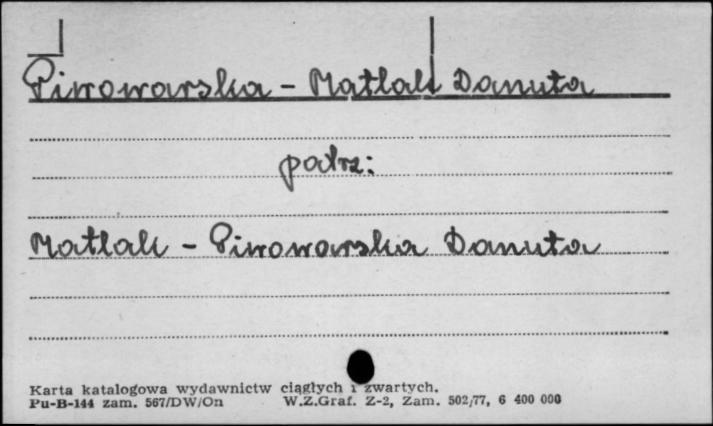 Piwowarska - Matlak Danuta
patrz:
Matlak - Piwowarska Danuta
Karta katalogowa wydawnictw ciągłych i zwartych.
Pu-B-144 zam. 567/DW/On W.Z.Graf. Z-2, Zam. 502/77, 6 400 000